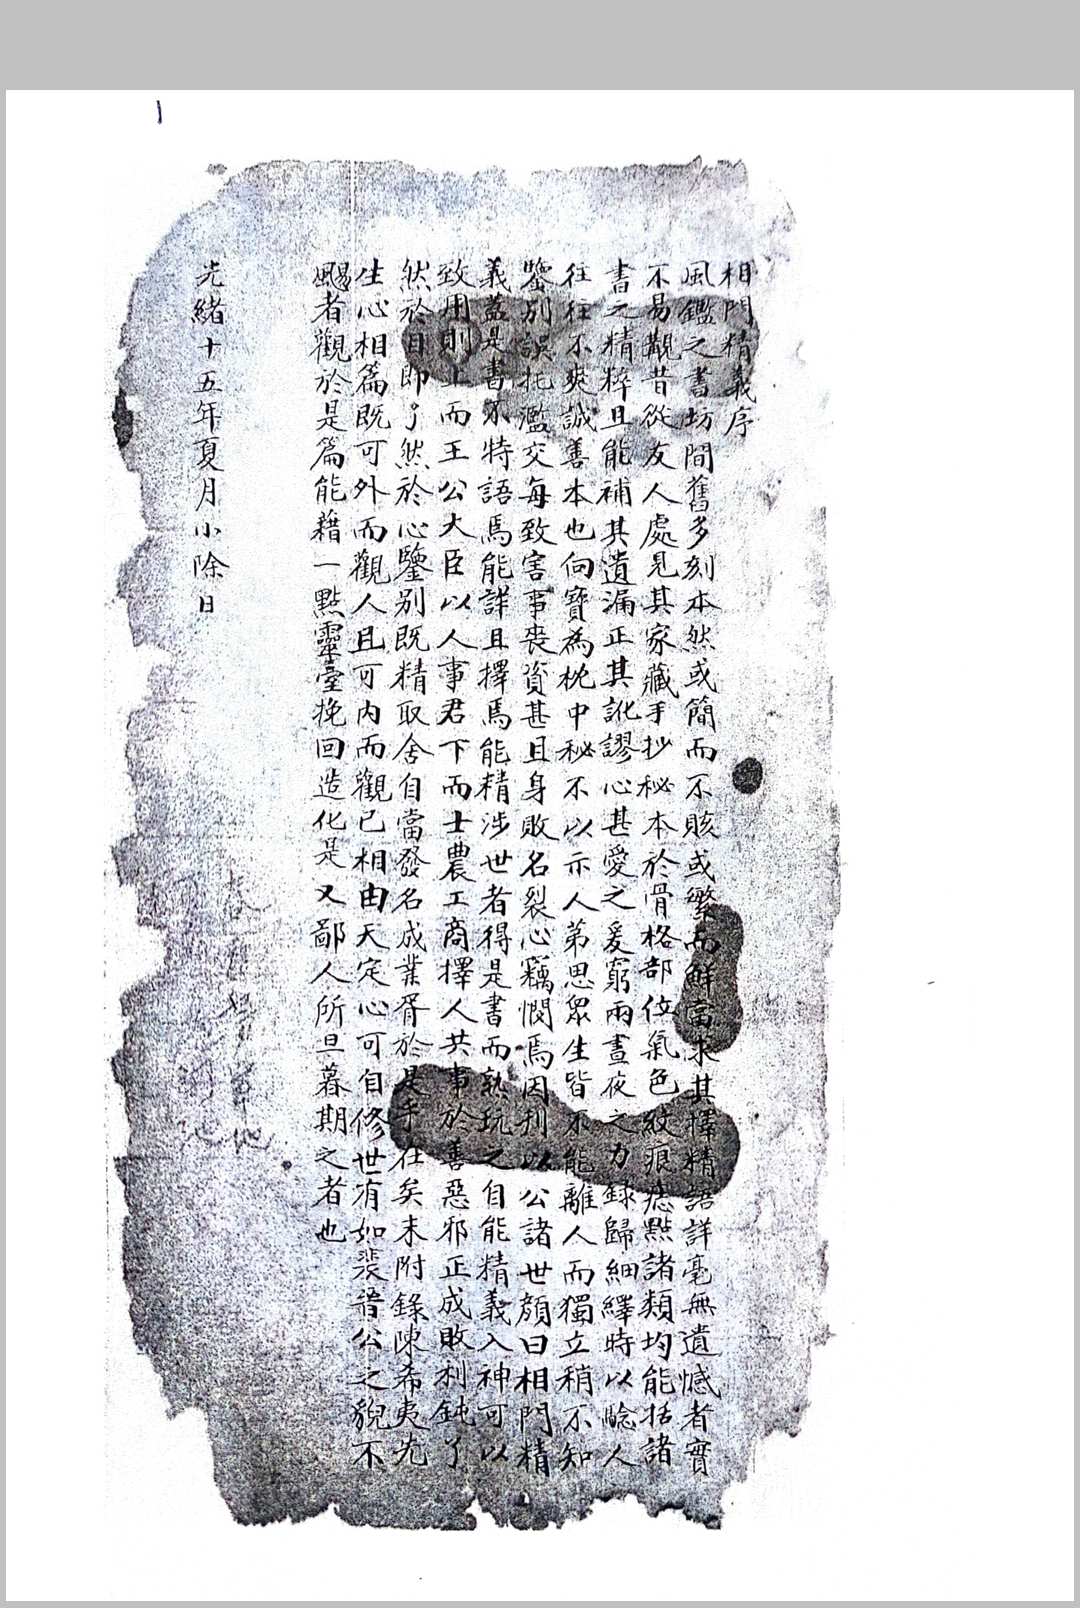 相門精義序
風鑑之書坊間舊多刻本然或簡而不賅或繁而鮮當求其擇精語詳毫無遺憾者實
不易覯昔從友人處見其家藏手抄秘本於骨格部位氣色紋痕痣點諸類均能括諸
書之精粹且能補其遺漏正其訛謬心甚愛之爰窮兩晝夜之力錄歸細繹時以驗人
往往不爽誠善本也向寶為枕中秘不以示人第思眾生皆不能離人而獨立稍不知
鑒別誤托濫交每致害事喪資甚且身敗名裂心竊憫焉因刊以公諸世顔曰相門精
義蓋是書不特語焉能詳且擇焉能精涉世者得是書而熟玩之自能精義入神可以
致用則上而王公大臣以人事君下而士農工商擇人共事於善惡邪正成敗利鈍了
然於目即了然於心鑒別既精取舍自當發名成業胥於是乎在矣末附錄陳希夷先
生心相篇既可外而觀人且可內而觀已相由天定心可自修世有如裴晉公之貌不
颺者觀於是篇能藉一點靈臺挽回造化是又鄙人所旦暮期之者也
光緒十五年夏月小除日